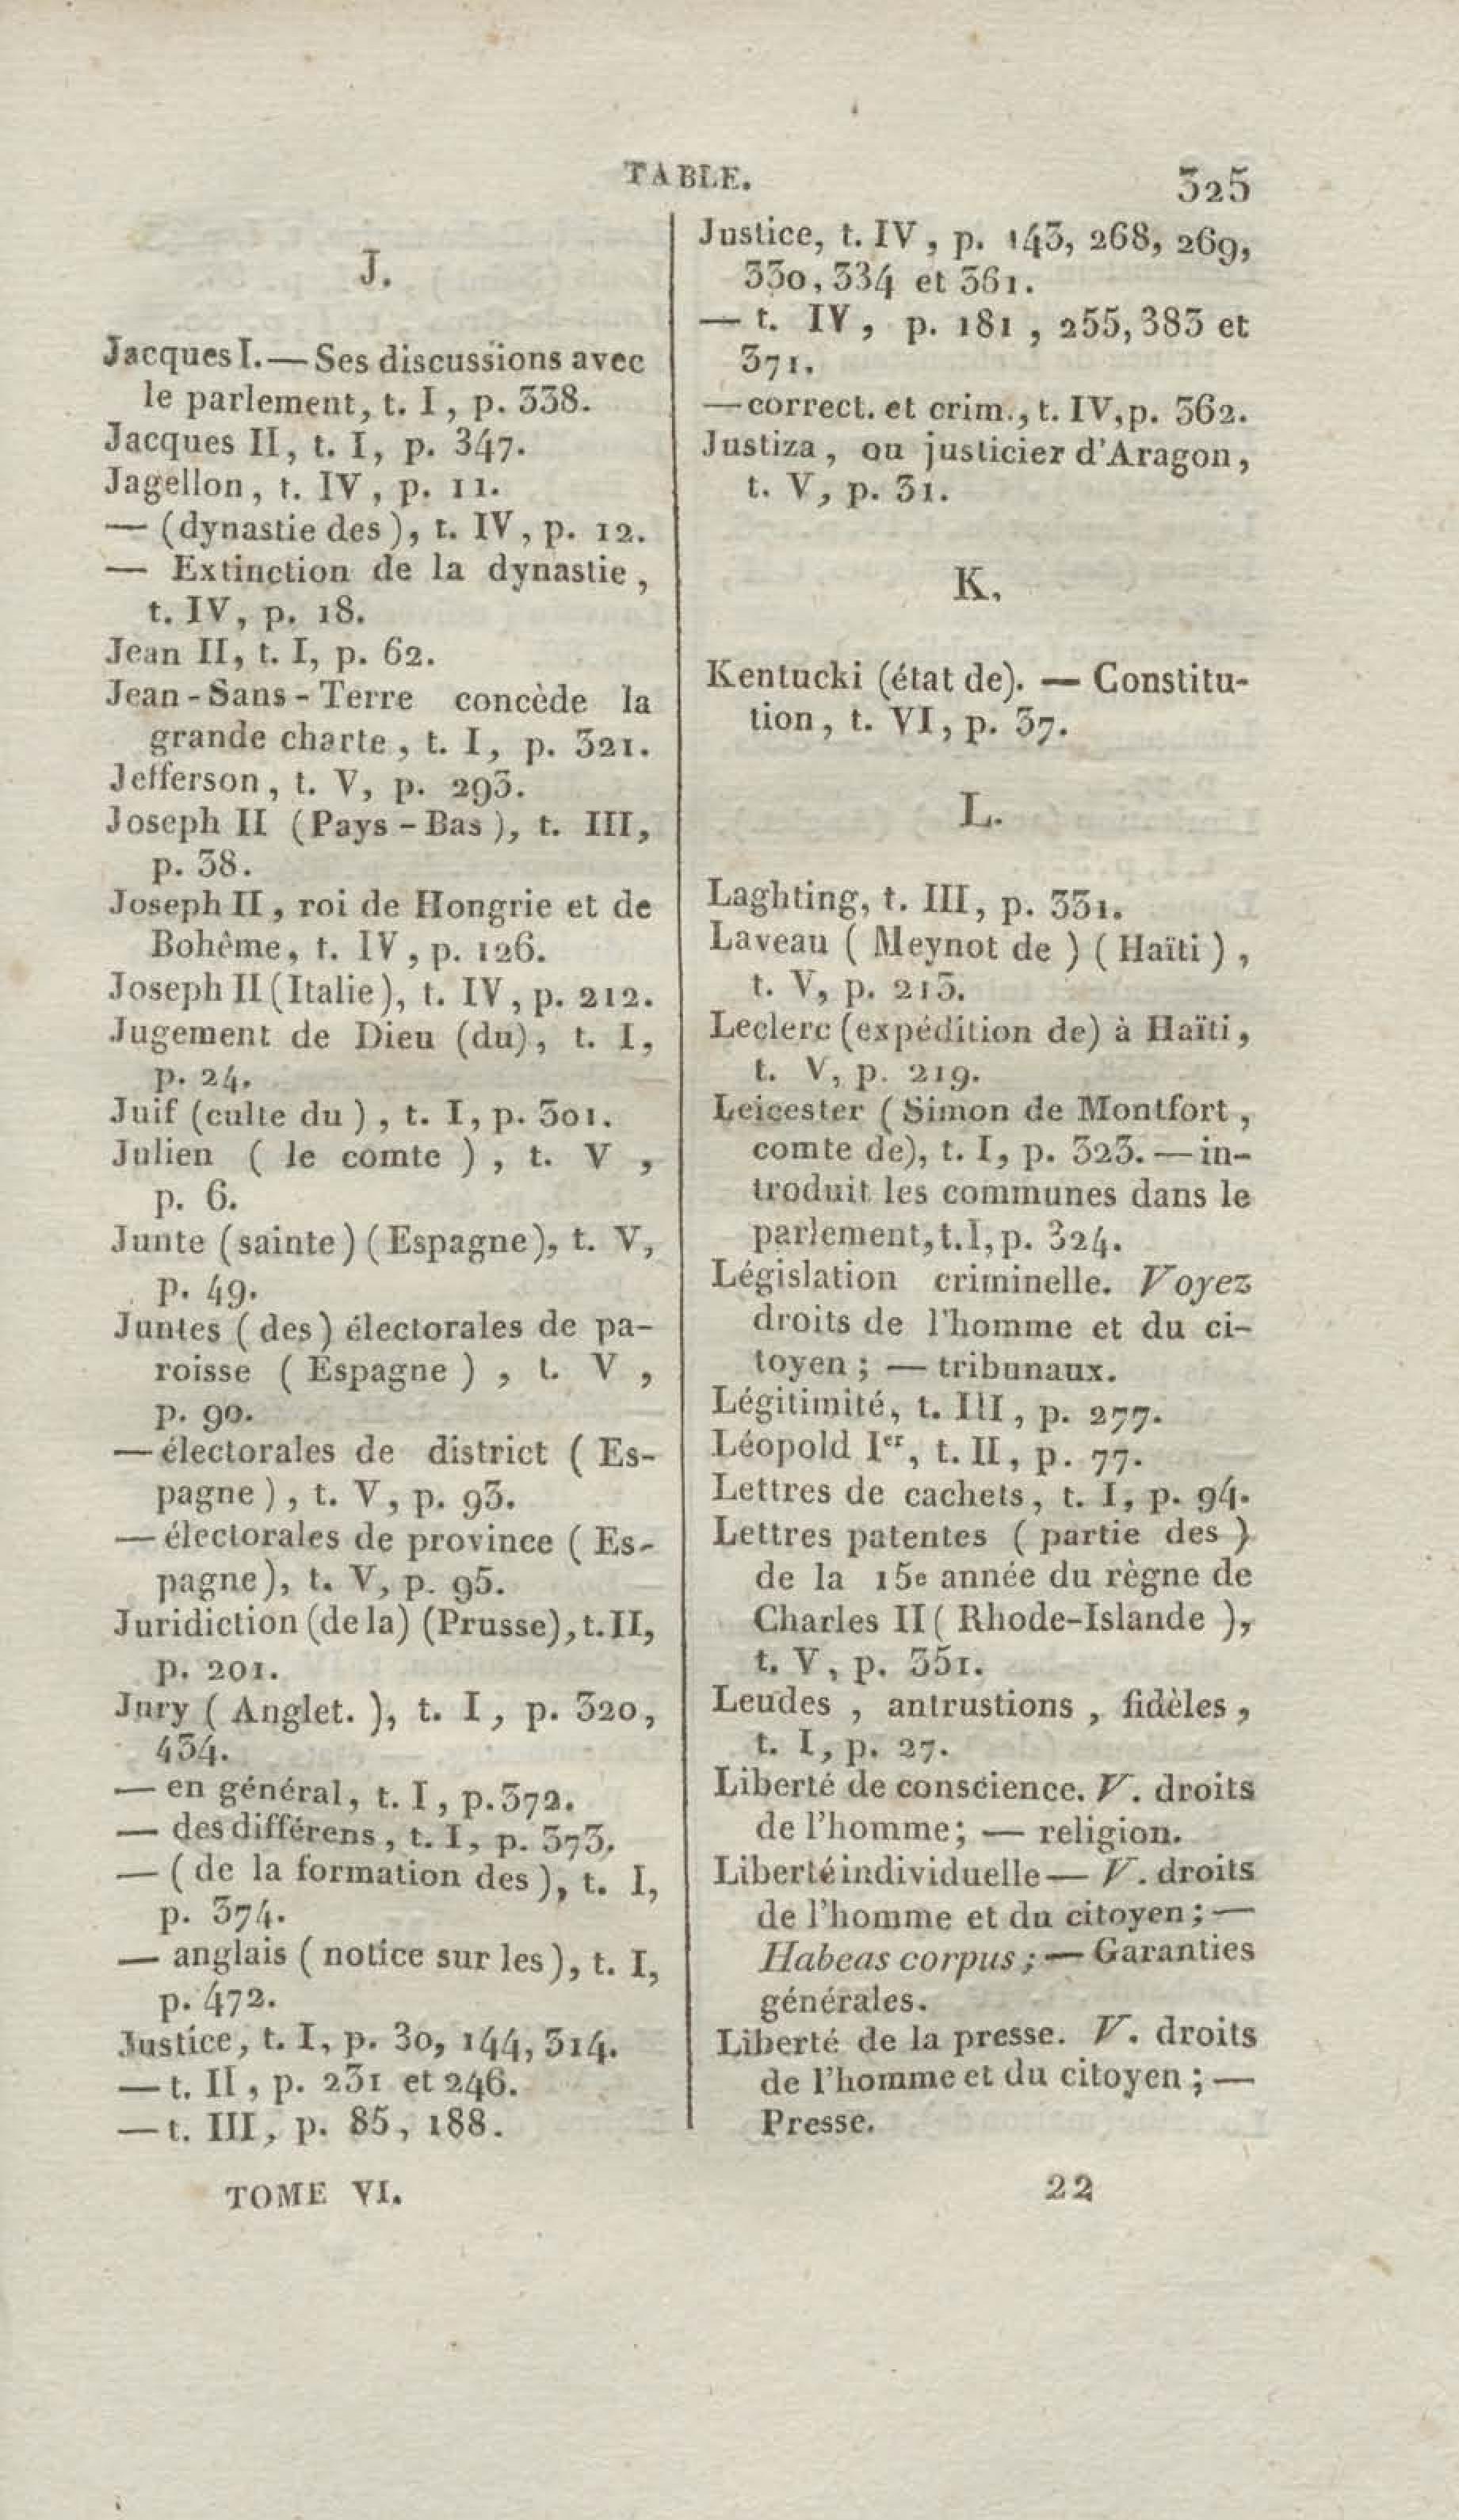 TABLE.
325
J.
Jacques I.—Ses discussions avec
le parlement, t. I, p. 338.
Jacques II, t. I, p. 347.
Jagellon, t. IV, p. 11.
— (dynastie des), t. IV, p. 12.
— Extinction de la dynastie,
t. IV, p. 18.
Jean II, t. I, p. 62.
Jean-Sans-Terre concède la
grande charte, t. I, p. 321.
Jefferson, t. V, p. 293.
Joseph II (Pays-Bas), t. III,
p. 38.
Joseph II, roi de Hongrie et de
Bohême, t. IV, p. 126.
Joseph II (Italie), t. IV, p. 212.
Jugement de Dieu (du), t. I,
p. 24.
Juif (culte du), t. I, p. 301.
Julien (le comte), t. V,
p. 6.
Junte (sainte) (Espagne), t. V,
p. 49.
Juntes (des) électorales de pa-
roisse (Espagne), t. V,
p. 90.
—électorales de district (Es-
pagne), t. V, p. 93.
—électorales de province (Es-
pagne), t. V, p. 95.
Juridiction (de la) (Prusse), t. II,
p. 201.
Jury (Anglet.), t. I, p. 320,
434.
— en général, t. I, p. 372.
— des différens, t. I, p. 373.
— (de la formation des), t. I,
p. 374.
— anglais (notice sur les), t. I,
p. 472.
Justice, t. I, p. 30, 144, 314.
— t. II, p. 231 et 246.
— t. III, p. 85, 188.
Justice, t. IV, p. 143, 268, 269,
330, 334 et 361.
— t. IV, p. 181, 255, 383 et
371.
—correct. et crim., t. IV, p. 362.
Justiza, ou justicier d'Aragon,
t. V, p. 31.
K.
Kentucki (état de). — Constitu-
tion, t. VI, p. 37.
L.
Laghting, t. III, p. 331.
Laveau (Meynot de) (Haïti),
t. V, p. 215.
Leclerc (expédition de) à Haïti,
t. V, p. 219.
Leicester (Simon de Montfort,
comte de), t. I, p. 323. — in-
troduit les communes dans le
parlement, t. I, p. 324.
Législation criminelle. Voyez
droits de l'homme et du ci-
toyen; — tribunaux.
Légitimité, t. III, p. 277.
Léopold Ier, t. II, p. 77.
Lettres de cachets, t. I, p. 94.
Lettres patentes (partie des)
de la 15e année du règne de
Charles II (Rhode-Islande),
t. V, p. 351.
Leudes, antrustions, fidèles,
t. I, p. 27.
Liberté de conscience. V. droits
de l'homme; — religion.
Liberté individuelle — V. droits
de l'homme et du citoyen; —
Habeas corpus; — Garanties
générales.
Liberté de la presse. V. droits
de l'homme et du citoyen; —
Presse.
TOME VI.
22